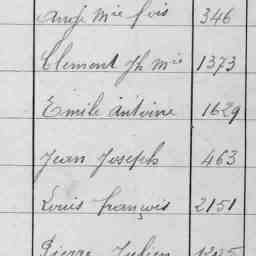 Ange Mie fois 346
Clement Jh Mie 1373
Emile Antoine 1629
Jean Joseph 463
Louis françois 2151
Pierre Julien